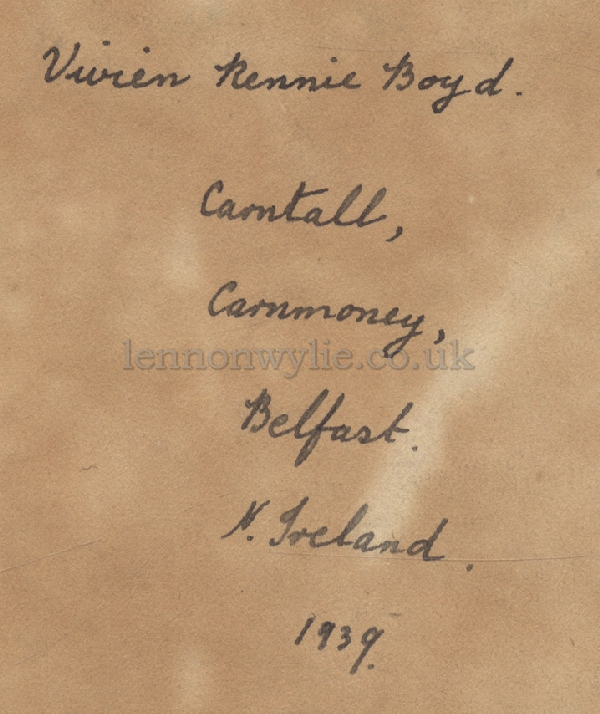 Vivien Rennie Boyd.
Carntall,
Carnmoney,
lennonwylie.co.uk
Belfast.
N. Ireland.
1939.